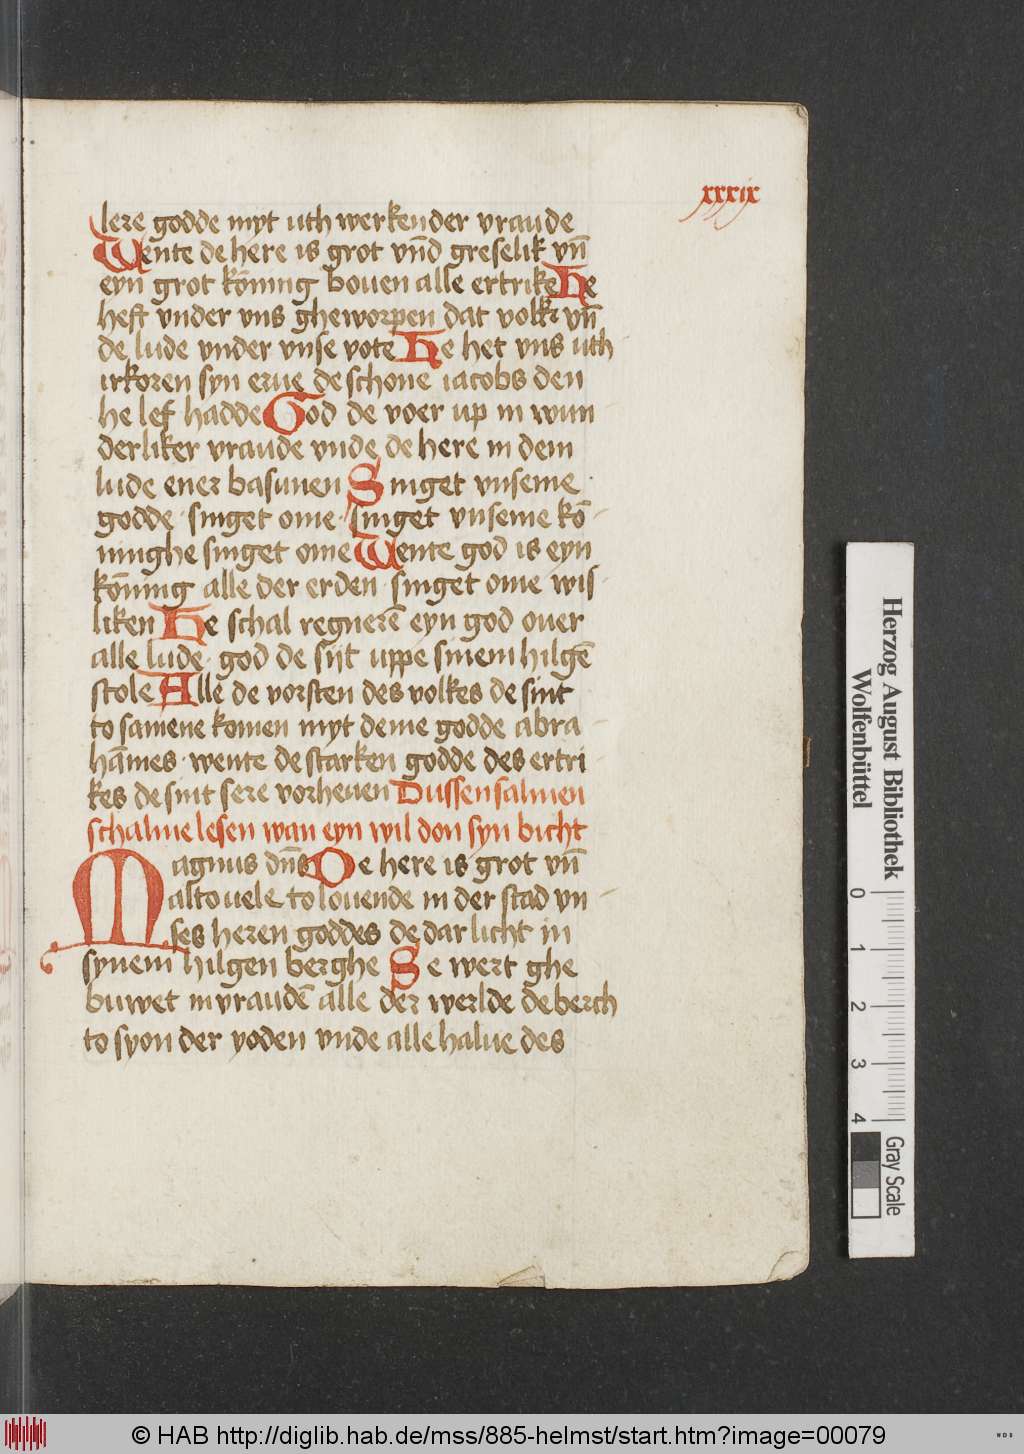 xxxix
lere godde myt uth werkender vraude
Wente de here is grot vn̄d greselik vn̄
eyn grot kōning bouen alle ertrike He
heft vnder vns gheworpen dat volk vn̄
de lude vnder vnse vote He het vns uth
irkoren syn erue de schone iacobs den
he lef hadde God de voer up in wun
derliker vraude vnde de here in dem
lude ener basunen Singet vnseme
godde · singet ome · singet vnseme kō
ninghe singet ome Wente god is eyn
kōning alle der erden · singet ome wis
liken He schal regnerē eyn god ouer
alle lude · god de sijt uppe sinem hilgē
stole Alle de vorsten des volkes de sint
to samene komen myt deme godde abra
hāmes · wente de starken godde des ertri
kes de sint sere vorheuen Dussen salmen
schalme lesen wan eyn wil don syn bicht
Magnus dn̄s De here is grot vn̄
altouele to louende in der stad vn
ses heren goddes de dar licht in
synem hilgen berghe Se wert ghe
buwet in vraudē alle der werlde de berch
to syon der yoden vnde alle halue des
Herzog August Bibliothek
Wolfenbüttel
0 1 2 3 4
Gray Scale
© HAB http://diglib.hab.de/mss/885-helmst/start.htm?image=00079
WDB